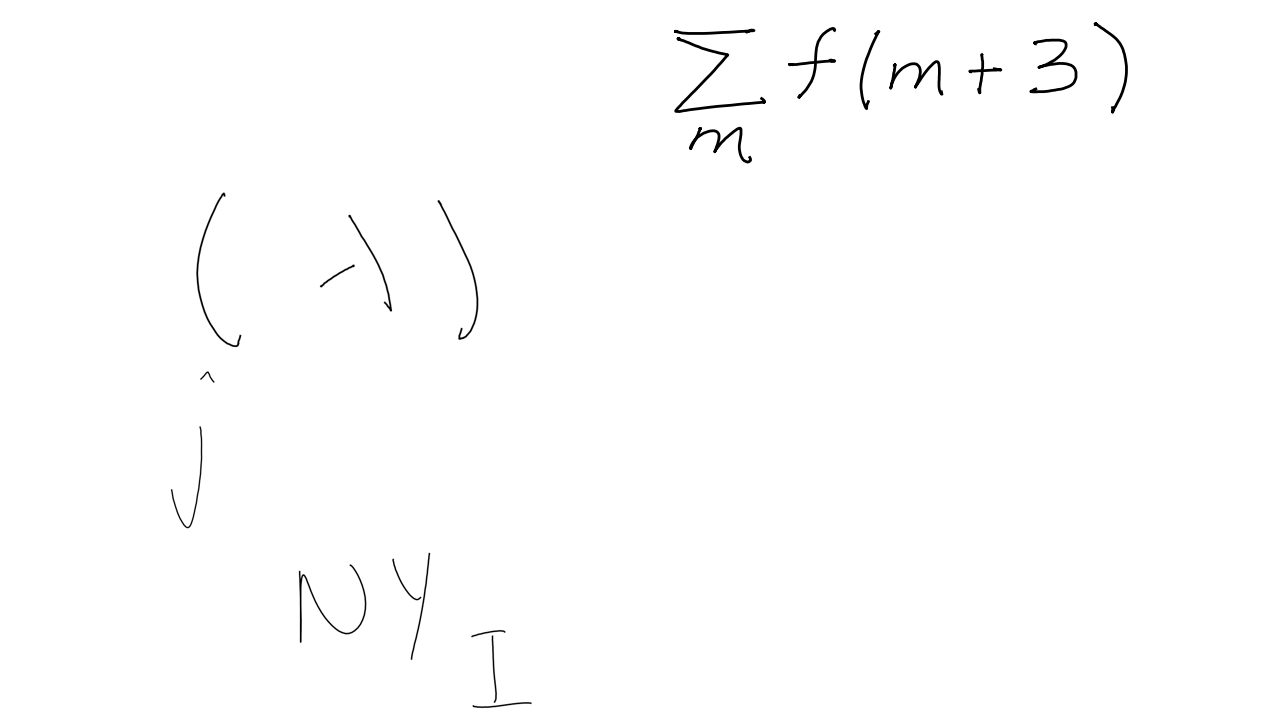 ∑_m f(m+3)
( -λ )
ĵ
NY_I